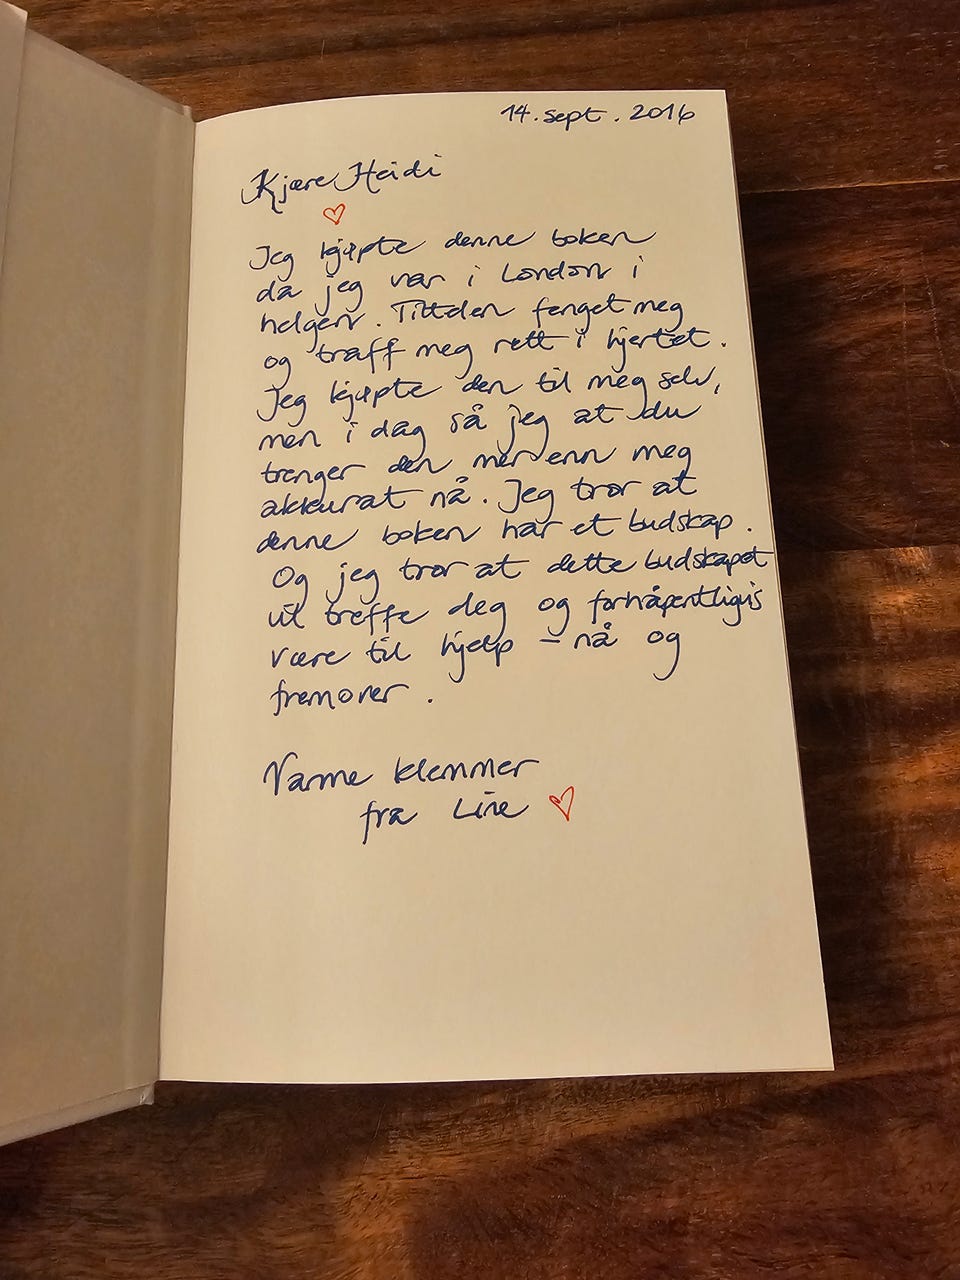 14. sept. 2016
Kjære Heidi
Jeg kjøpte denne boken
da jeg var i London i
helgen. Tittelen fenget meg
og traff meg rett i hjertet.
Jeg kjøpte den til meg selv,
men i dag så jeg at du
trenger den mer enn meg
akkurat nå. Jeg tror at
denne boken har et budskap.
Og jeg tror at dette budskapet
vil treffe deg og forhåpentligvis
være til hjelp – nå og
fremover.
Varme klemmer
fra Line